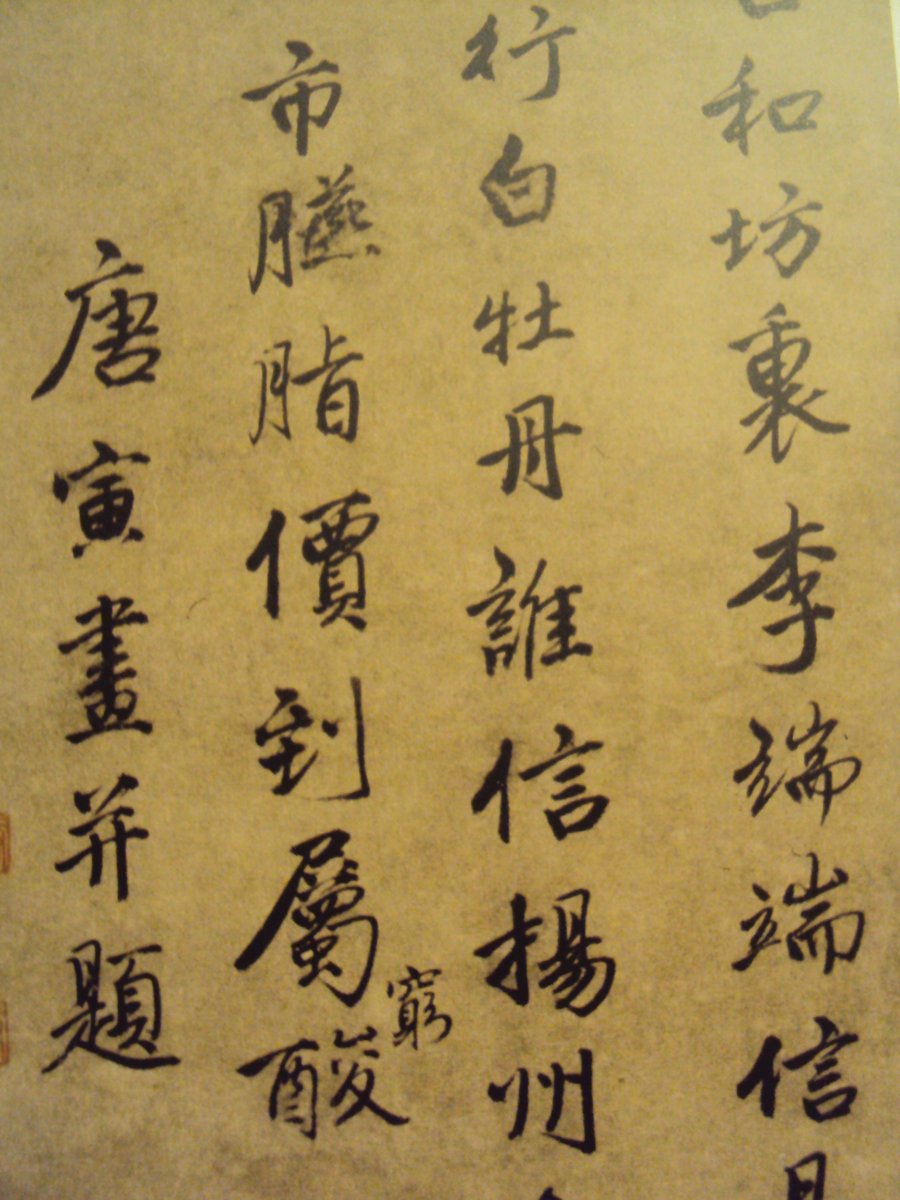 和坊裏李端端信
行白牡丹誰信揚州
市臙脂價到屬窮酸
唐寅畫并題